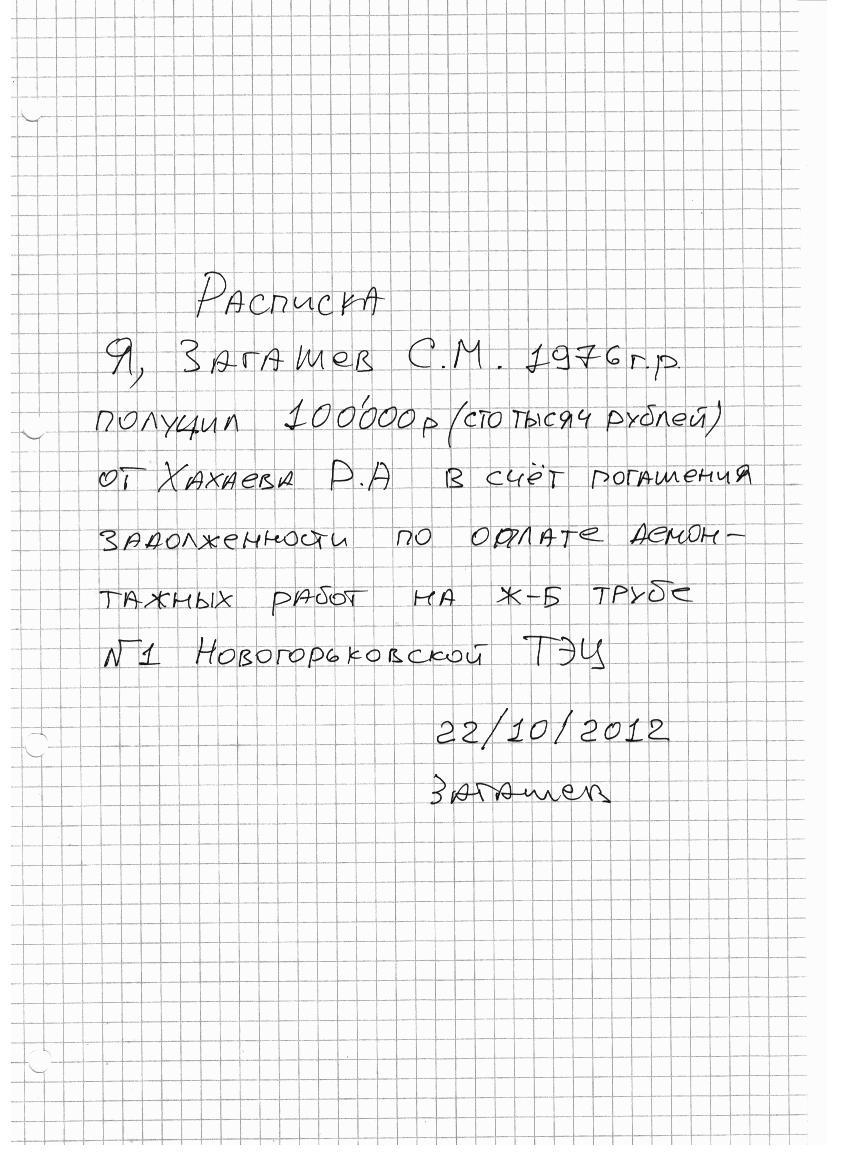 Расписка
Я, Загашев С.М. 1976 г.р.
получил 100'000 р (сто тысяч рублей)
от Хахаева Р.А в счёт погашения
задолженности по оплате демон-
тажных работ на ж-б трубе
№1 Новогорьковской ТЭЦ
22/10/2012
Загашев